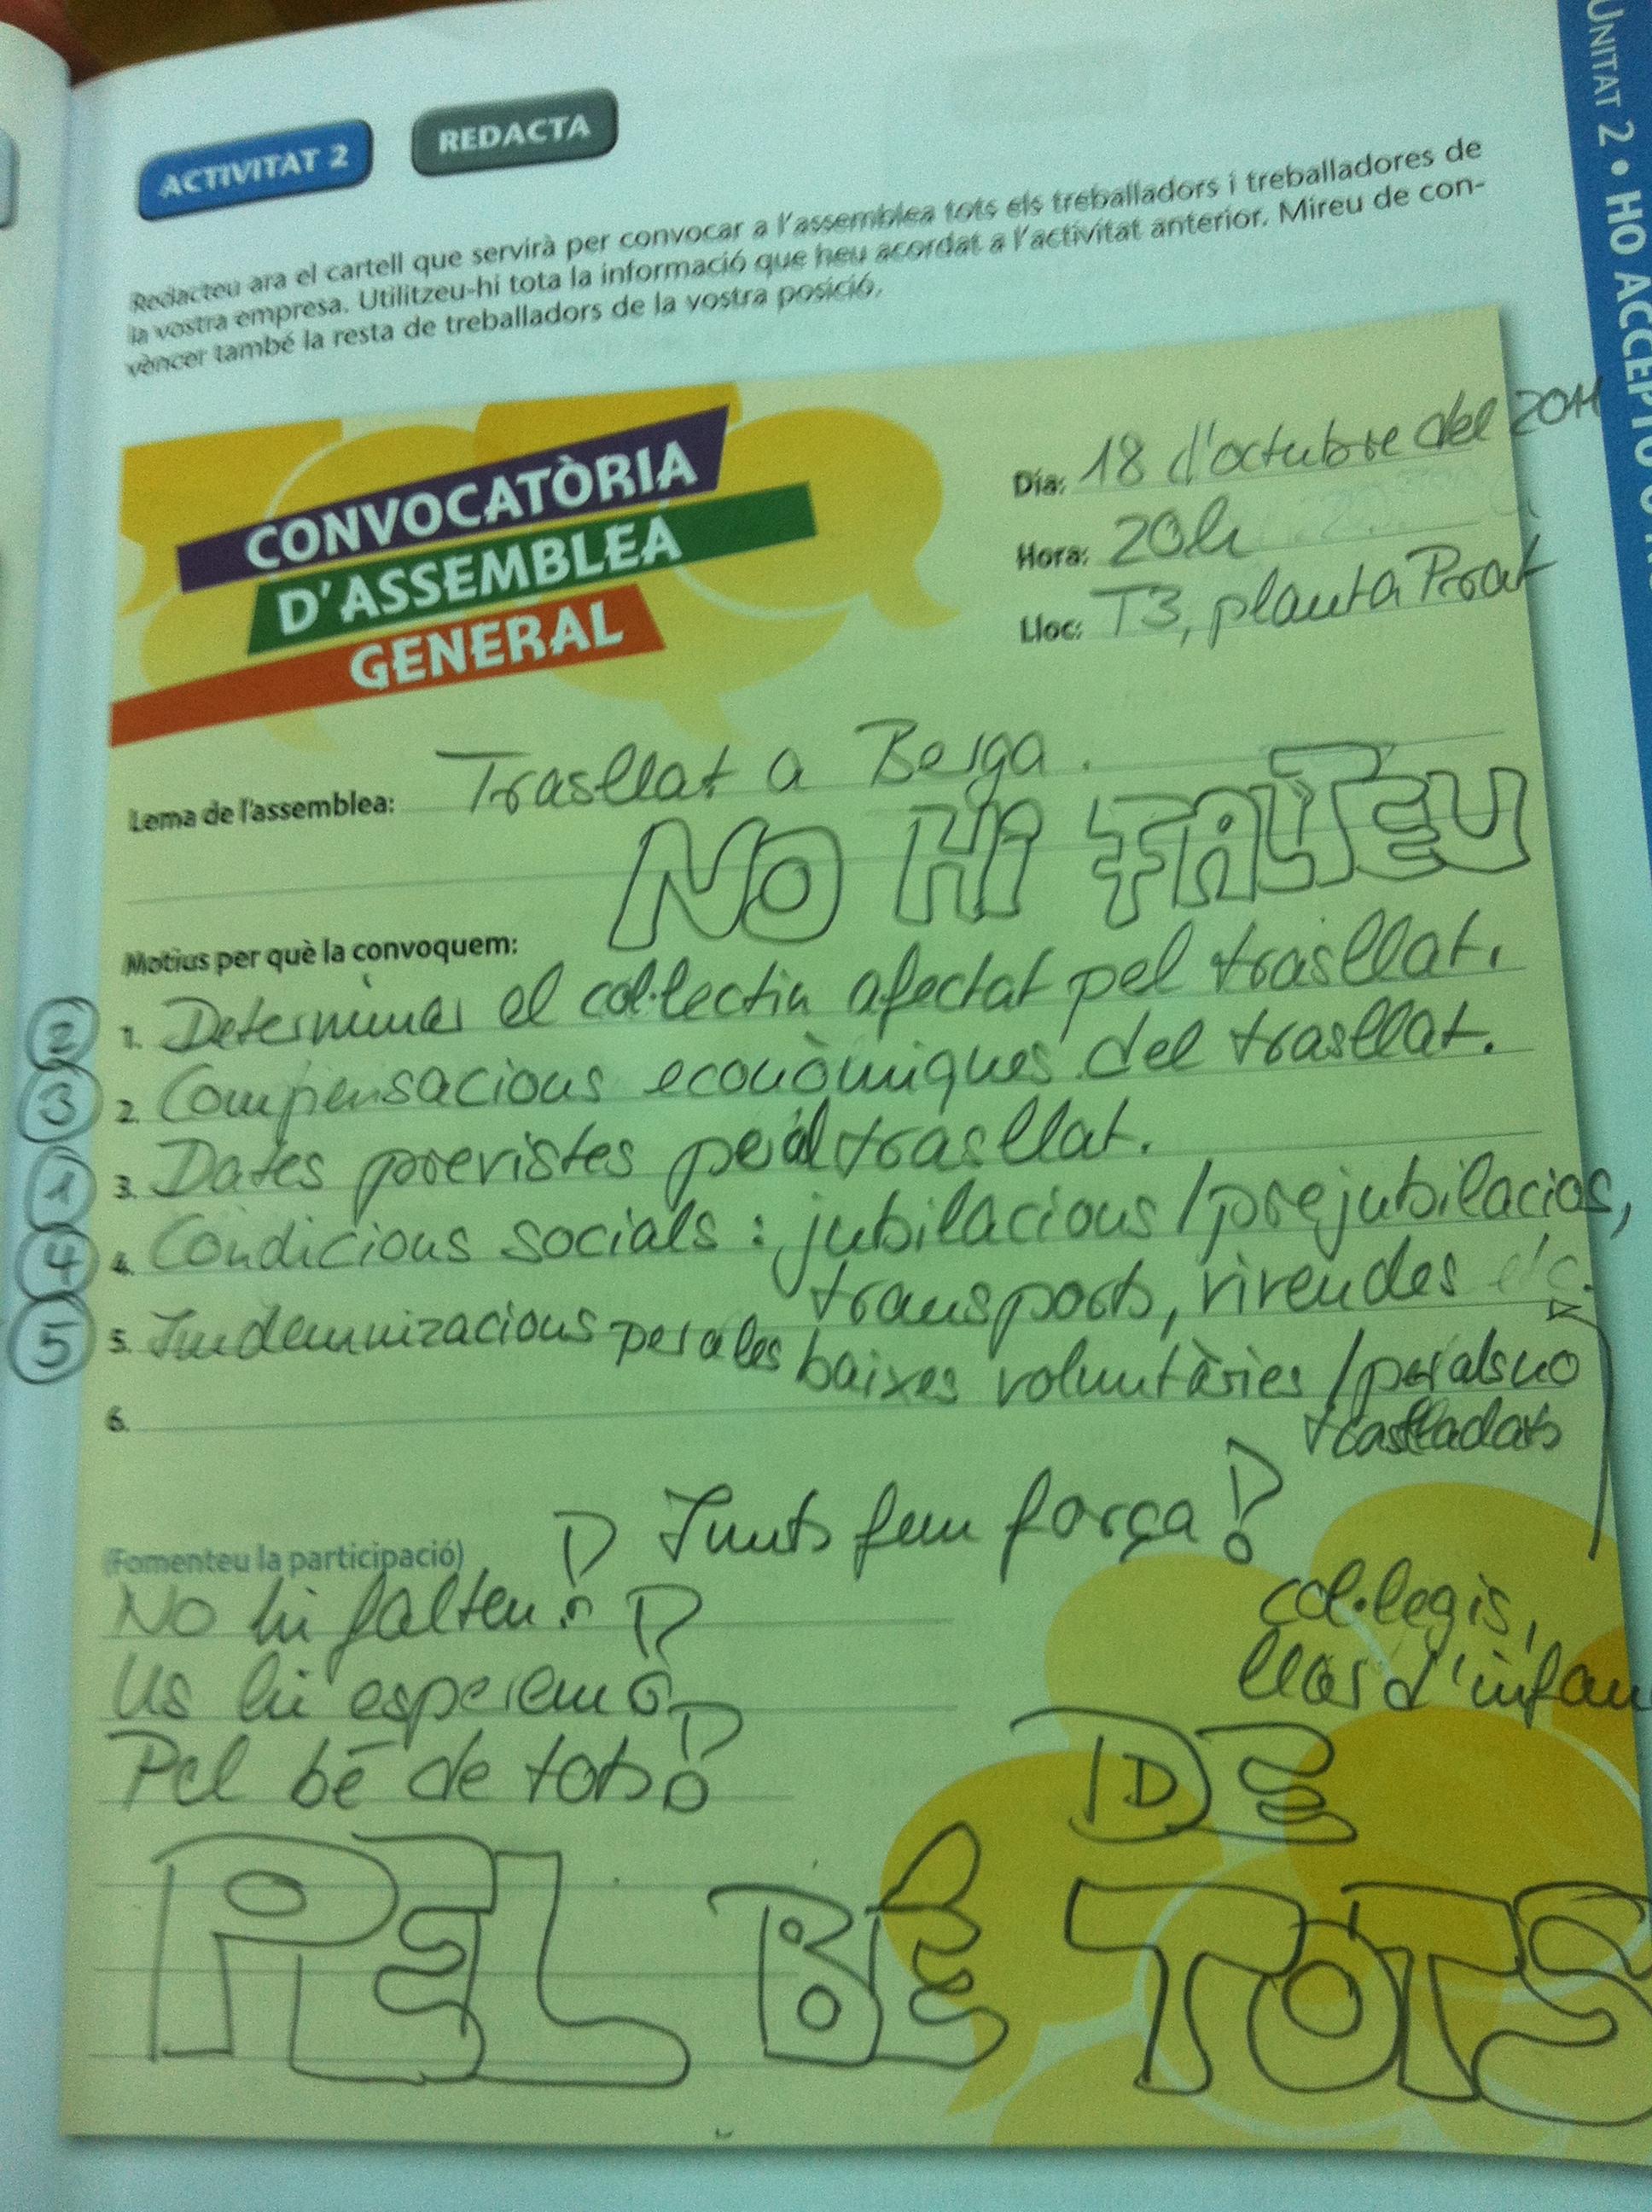 UNITAT 2 • HO ACCEPTO
ACTIVITAT 2
REDACTA
Redacteu ara el cartell que servirà per convocar a l'assemblea tots els treballadors i treballadores de
la vostra empresa. Utilitzeu-hi tota la informació que heu acordat a l'activitat anterior. Mireu de con-
vèncer també la resta de treballadors de la vostra posició.
CONVOCATÒRIA
D'ASSEMBLEA
GENERAL
Dia: 18 d'octubre del 2011
Hora: 20h
Lloc: T3, planta Prat
Lema de l'assemblea: Trasllat a Berga.
NO Hi FALTEU
Motius per què la convoquem:
2 1. Determinar el col·lectiu afectat pel trasllat.
3 2. Compensacions econòmiques del trasllat.
1 3. Dates previstes per al trasllat.
4 4. Condicions socials: jubilacions / prejubilacios,
transports, vivendes etc.
5 5. Indemnizacions per a les baixes voluntàries / per als no
traslladats
6.
(Fomenteu la participació) Junts fem força!
No hi falteu!
Us hi esperem!
Pel bé de tots!
col·legis,
llar d'infan
PEL BÉ DE TOTS